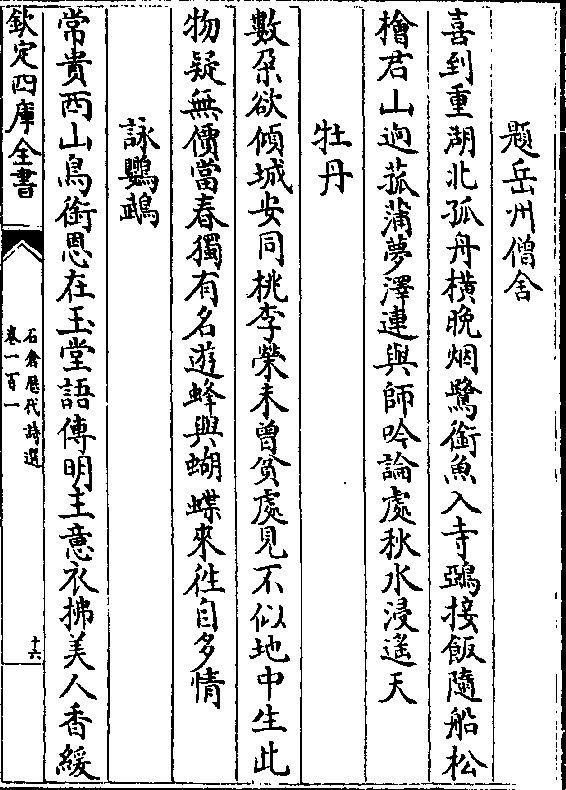 題岳州僧舍
喜到重湖北孤舟橫晚烟鷺銜魚入寺鵶接飯隨船松
檜君山逈菰蒲夢澤連與師吟論處秋水浸遙天
牡丹
數朶欲傾城安同桃李榮未曾貧處見不似地中生此
物疑無價當春獨有名遊蜂與蝴蝶來徃自多情
詠鸚鵡
常貴西山鳥銜恩在玉堂語傳明主意衣拂美人香緩
欽定四庫全書
石倉歷代詩選
卷一百一
十六